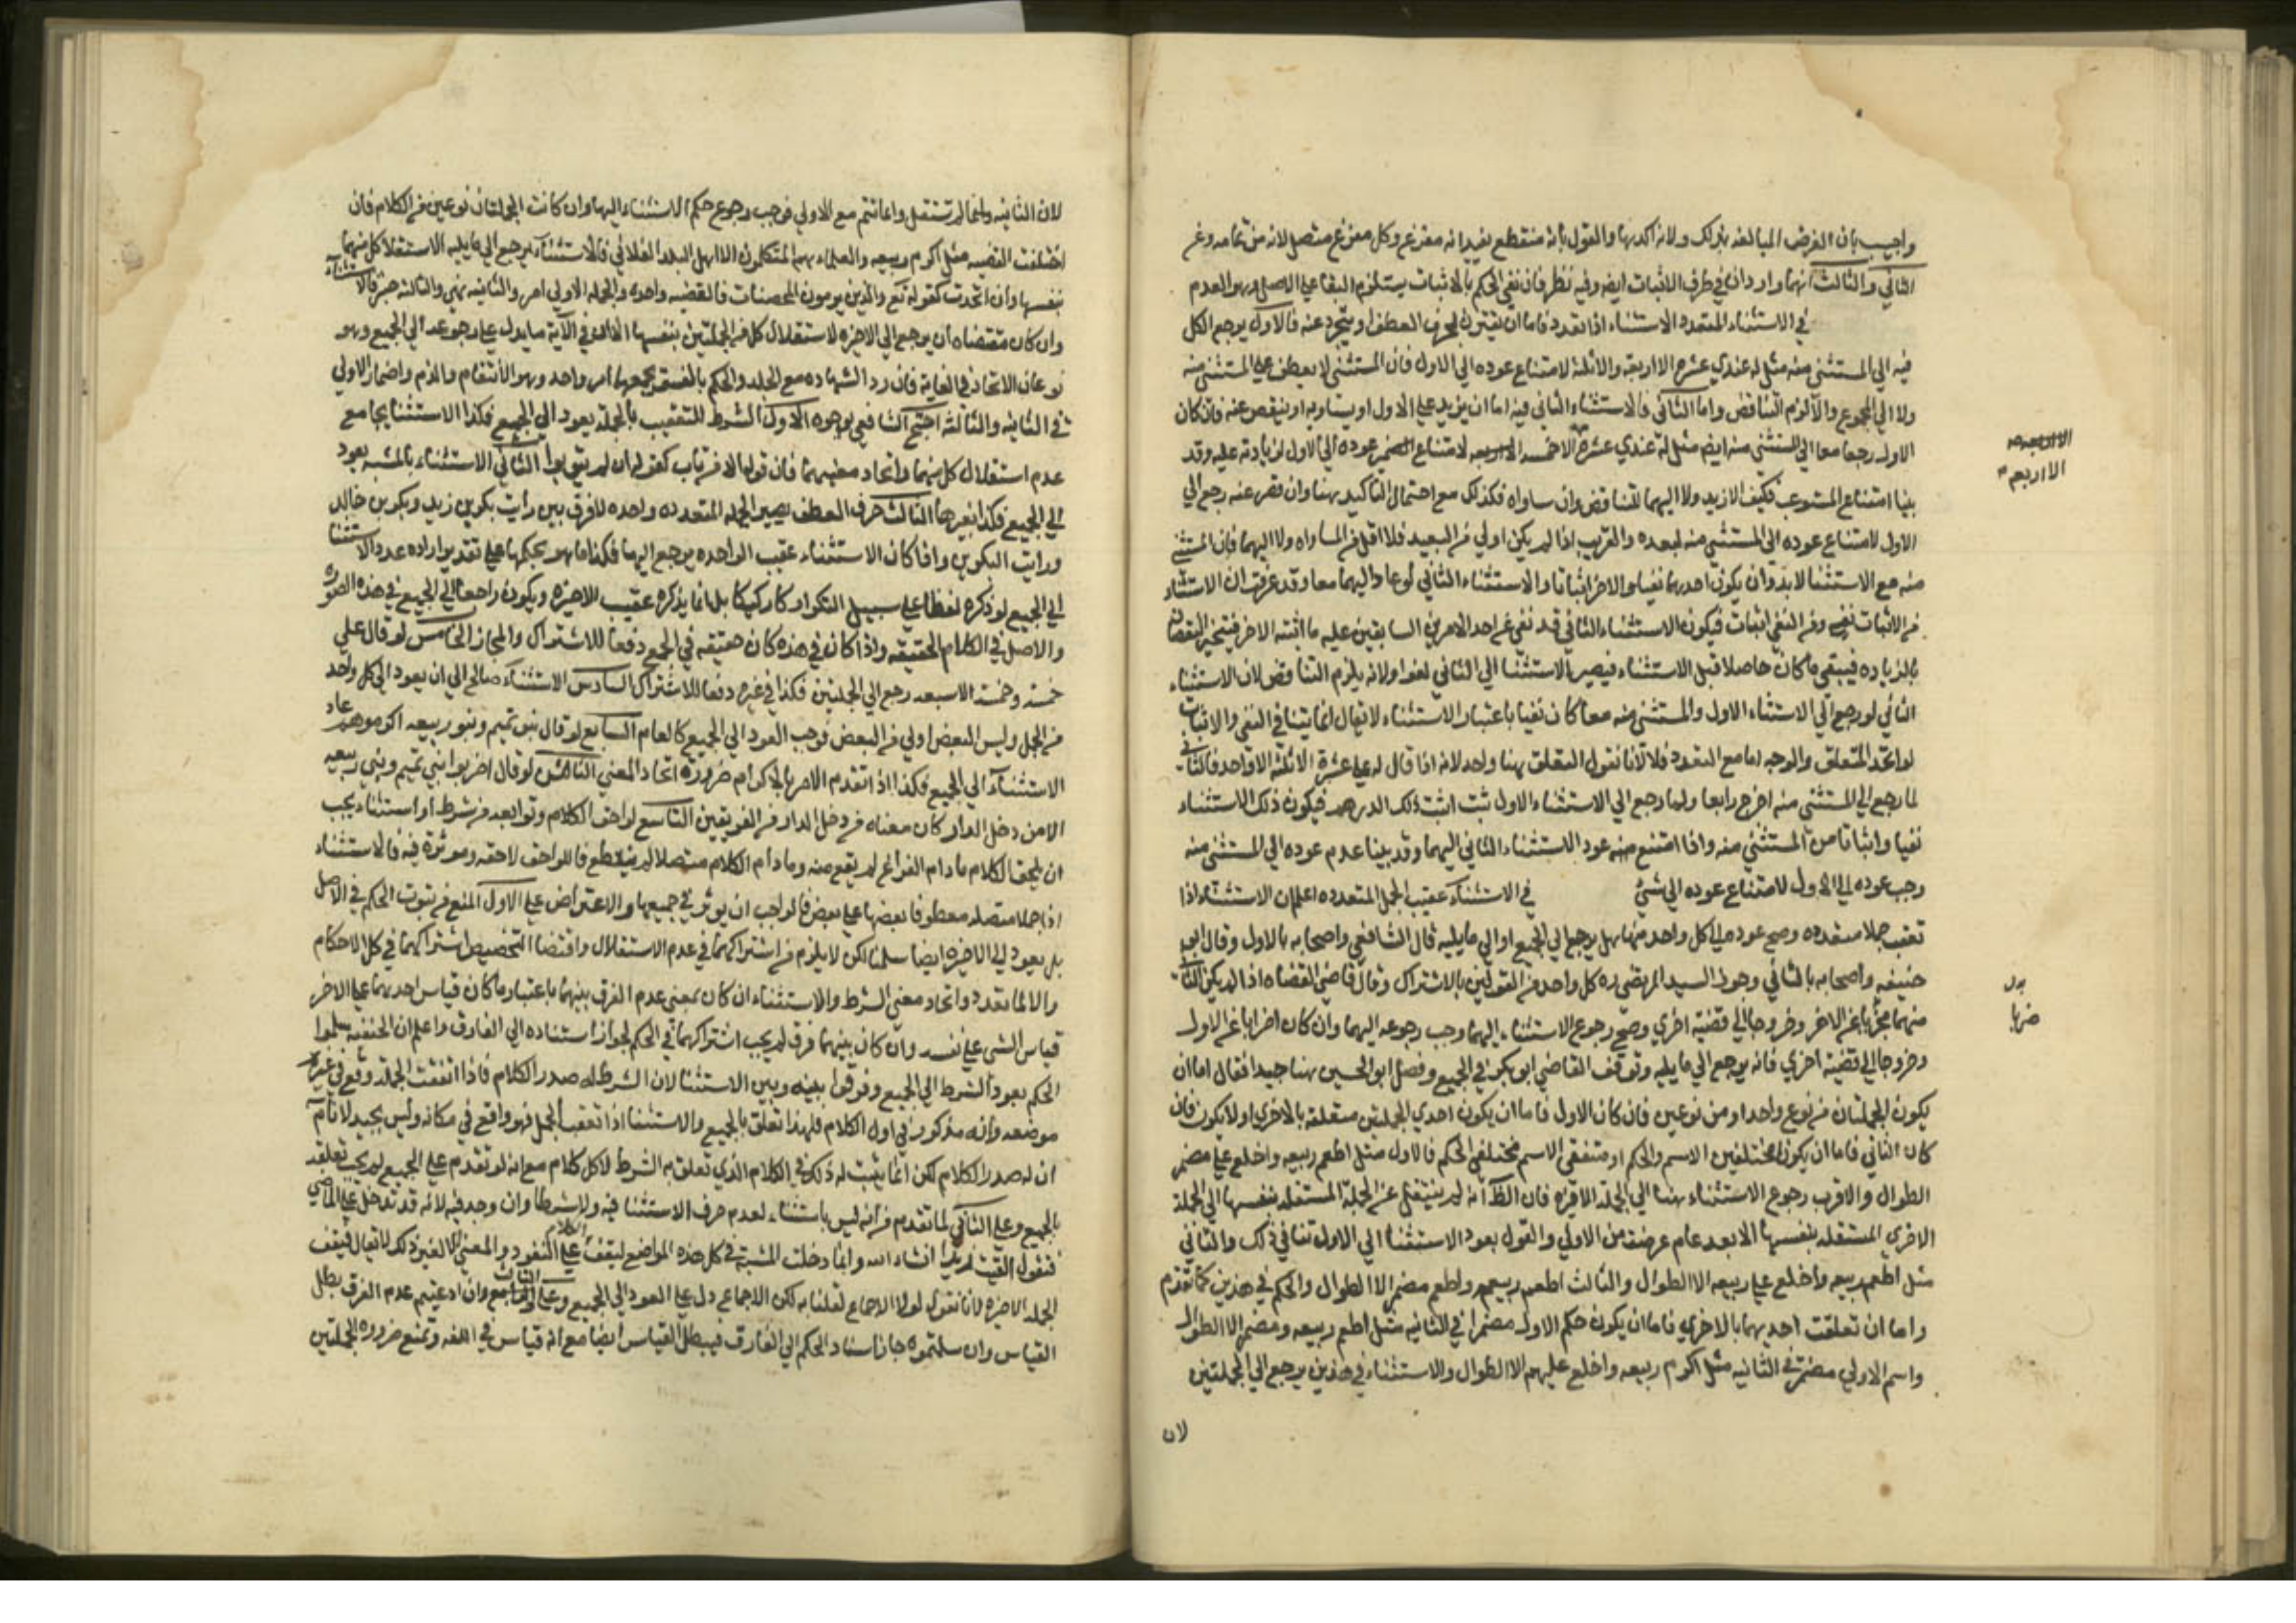 واجيب بان الغرض المبالغه بذلك ولانه اكدبها والقول بانه منقطع بعيد انه مفرغ وكل مفرغ متصل لانه من تمامه وعن
الثاني والثالث انهما واردان في طرف الاثبات ايضا وفيه نظر فان نفي الحكم بالاثبات يستلزم البقاء علي الاصل وهو العدم
في الاستثناء المتعدد الاستثناء اذا تعدد فاما ان يقترن بحرف العطف او يتجرد عنه فالاول يرجع الكل
فيه الي المستثني منه مثل له عندي عشره الا اربعه والا ثلثه لامتناع عوده الي الاول فان المستثني لا يعطف علي المستثني منه
ولا الي المجموع والا لزم التناقض واما الثاني فالاستثناء الثاني فيه اما ان يزيد علي الاول او يساويه او ينقص عنه فان كان
الاول رجعا معا الي المستثني منه ايضا مثل له عندي عشره الا خمسه لامتناع عوده الي الاول لزيادته عليه وقد
الاربعه
الا اربعه
بينا امتناع المستوعب فكيف الازيد ولا اليهما للتناقض وان ساواه فكذلك مع احتمال التاكيد هنا وان قصر عنه رجع الي
الاول لامتناع عوده الي المستثني منه لبعده والقريب اذا لم يكن اولي من البعيد فلا اقل من المساواه ولا اليهما فان المستثني
منه مع الاستثنا لا بد وان يكون احدهما نفيا والاخر اثباتا والاستثناء الثاني لو عاد اليهما معا وقد عرفت ان الاستثناء
من الاثبات نفي ومن النفي اثبات فيكون الاستثناء الثاني قد نفي عن احد الامرين السابقين عليه ما اثبته الاخر فينجبر النقصان
بالزياده فيبقي ما كان حاصلا قبل الاستثناء فيصير الاستثنا الي الثاني لغوا ولانه يلزم التناقض لان الاستثناء
الثاني لو رجع الي الاستثناء الاول والمستثني منه معا كان نفيا باعتبار الاستثناء لا يقال انما يتنافي النفي والاثبات
لو اتحد المتعلق والوجه اما مع التعدد فلا لانا نقول المتعلق هنا واحد لانه اذا قال له علي عشرة الا ثلثه الا واحد فالثاني
لما رجع الي المستثني منه اخرج رابعا ولما رجع الي الاستثناء الاول ثبت اثبت ذلك الدرهم فيكون ذلك الاستثناء
نفيا واثباتا من المستثني منه واذا امتنع عود الاستثناء الثاني اليهما وقد بينا عدم عوده الي المستثني منه
وجب عوده الي الاول لامتناع عوده الي شئ في الاستثناء عقيب الجمل المتعدده اعلم ان الاستثناء اذا
تعقب جملا متعدده وصح عوده الي كل واحد منها هل يرجع الي الجميع او الي ما يليه قال الشافعي واصحابه بالاول وقال ابو
حنيفه واصحابه بالثاني وجوز السيد المرتضي ره كل واحد من القولين بالاشتراك وقال قاضي القضاه اذا لم يكن الثاني
منهما اضرابا عن الاخر وخروجا الي قضية اخري وصح رجوع الاستثناء اليهما وجب رجوعه اليهما وان كان اضرابا عن الاول
وخروجا الي قضية اخري فانه يرجع الي ما يليه وتوقف القاضي ابو بكر في الجميع وفصل ابو الحسين هنا جيدا فقال اما ان
يكون الجملتان من نوع واحد او من نوعين فان كان الاول فاما ان يكون احدي الجملتين متعلقة بالاخري اولا يكون فان
كان الثاني فاما ان يكونا مختلفين الاسم والحكم او متفقي الاسم مختلفي الحكم فالاول مثل اطعم ربيعه واخلع علي مضر
الطوال والاقرب رجوع الاستثناء هنا الي الجملة الاخيره فان الظ انه لم ينتقل عن الجملة المستقله بنفسها الي الجملة
الاخري المستقله بنفسها الا بعد تمام غرضه من الاولي والقول بعود الاستثنا الي الاول تنافي ذلك والثاني
مثل اطعم ربيعه واخلع علي ربيعه الا الطوال والثالث اطعم ربيعه واطعم مضر الا الطوال والحكم في هذين كما تقدم
واما ان تعلقت احديهما بالاخري فاما ان يكون حكم الاولي مضمرا في الثانيه مثل اطعم ربيعه ومضر الا الطوال
واسم الاولي مضمرة في الثانيه مثل اكرم ربيعه واخلع عليهم الا الطوال والاستثناء في هذين يرجع الي الجملتين
لان
لان الثانيه لم تستقل وانما تتم مع الاولي فوجب رجوع حكم الاستثناء اليها وان كانت الجملتان نوعين من الكلام فان
اختلفت القضيه مثل اكرم ربيعه والعلماء هم المتكلمون الا اهل البلد الفلاني فالاستثناء يرجع الي ما يليه لاستقلال كل منهما
بنفسها وان اتحدت كقوله تع والذين يرمون المحصنات فالقضيه واحده والجملة الاولي امر والثانيه نهي والثالثه خبر فالاستثناء
وان كان مقتضاه ان يرجع الي الاخيره لاستقلال كل من الجملتين بنفسها الا ان في الآية ما يدل علي رجوعه الي الجميع وهو
نوعان الاتحاد في الغاية فان رد الشهاده مع الجلد والحكم بالفسق يجمعها امر واحد وهو الانتقام والذم واضمار الاولي
في الثانيه والثالثه احتج الشافعي بوجوه الاول الشرط المتعقب بالجملة يعود الي الجميع فكذا الاستثنا بجامع
عدم استقلال كل منهما واتحاد معنييهما فان قولنا الا من تاب كقولنا ان لم يتوبوا الثاني الاستثناء بالمشيه يعود
الي الجميع فكذا بغيرها الثالث حرف العطف يصير الجملة المتعدده واحده لا فرق بين رايت بكر بن زيد وبكر بن خالد
ورايت البكرين واذا كان الاستثناء عقيب الواحده يرجع اليها فكذا ما هو بحكمها علي تقدير اراده عدد الاستثنا
الي الجميع لو ذكره لفظا علي سبيل التكرار كان ركيكا بل انما يذكره عقيب الاخيره ويكون راجعا الي الجميع في هذه الصوره
والاصل في الكلام الحقيقه واذا كان في هذه كان حقيقه في الجميع دفعا للاشتراك والمجاز الخامس لو قال علي
خمسة وخمسة الا سبعه رجع الي الجملتين فكذا في غيره دفعا للاشتراك السادس الاستثناء صالح الي ان يعود الي كل واحد
من الجمل وليس البعض اولي من البعض فوجب العود الي الجميع كالعام السابع لو قال بنو تميم وبنو ربيعه اكرموهم عاد
الاستثناء الي الجميع فكذا اذا تقدم الامر بالاكرام ضرورة اتحاد المعني الثامن لو قال اضربوا بني تميم وبني ربيعه
الا من دخل الدار كان معناه من دخل الدار من الفريقين التاسع لواحق الكلام وتوابعه من شرط او استثناء يجب
ان يلحق الكلام ما دام الفراغ لم يقع منه وما دام الكلام متصلا لم ينقطع فاللواحق لاحقه وموثرة فيه فالاستثناء
اذا جملا متصله معطوفا بعضها علي بعض فالواجب ان يوثر في جميعها والاعتراض علي الاول المنع من ثبوت الحكم في الاصل
بل يعود الي الاخيره ايضا سلمنا لكن لا يلزم من اشتراكهما في عدم الاستقلال واقتضا التخصيص اشتراكهما في كل الاحكام
والا لما تعدد واتحاد معني الشرط والاستثناء ان كان بمعني عدم الفرق بينهما باعتبار ما كان قياس احدهما علي الاخر
قياس الشئ علي نفسه وان كان بينهما فرق لم يجب اشتراكهما في الحكم لجواز استناده الي الفارق واعلم ان الحنفيه سلموا
الحكم بعود الشرط الي الجميع وفرقوا بينه وبين الاستثنا لان الشرط له صدر الكلام فاذا اتفقت الجملة وقع في غير
موضعه وانه مذكور في اول الكلام فلهذا تعلق بالجميع والاستثنا اذا تعقب الجمل فهو واقع في مكانه وليس بجيد لانا نا
ان له صدر الكلام لكن انما يثبت له ذلك في الكلام الذي تعلق به الشرط لا كل كلام مع انه لو تقدم علي الجميع لم يجب تعلقه
بالجميع وعلي الثاني لما تقدم من انه ليس باستثناء لعدم حرف الاستثنا فيه ولا شرطا وان وجد فيه لانه قد تدخل علي الماضي
فنقول القيت زيدا انشاء الله وانما دخلت المشية في كل هذه المواضع ليقف الكلام علي النفود والمعني لا لغير ذلك لا يقال فيقف
الجملة الاخيره لانا نقول لولا الاجماع لقلنا به لكن الاجماع دل علي العود الي الجميع وعلي الثالث وان ادعيتم عدم الفرق بطل
القياس وان سلمتموه جاز اسناد الحكم الي الفارق فيبطل القياس ايضا مع انه قياس في اللغه وتمنع ضروره الجملتين